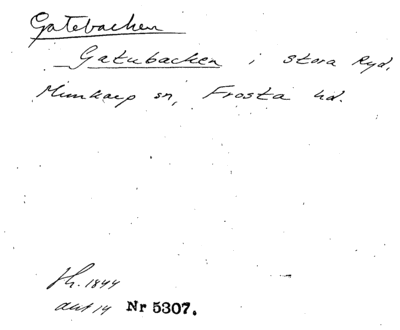 Gatebacken
Gatubacken i stora Ryd,
Munkarp sn, Frosta hd.
Sk. 1844
akt 14 Nr 5307.